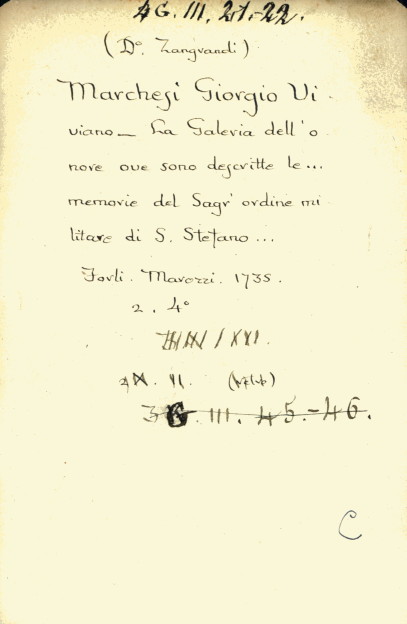 4 G. III. 21.-22.
(Dº. Zangrandi)
Marchesi Giorgio Vi-
viano_ La Galeria dell'o
nore ove sono descritte le...
memorie del Sagr' ordine mi
litare di S. Stefano...
Forlì. Marozzi. 1735.
2. 4º
VI.
III. 45.-46.
C